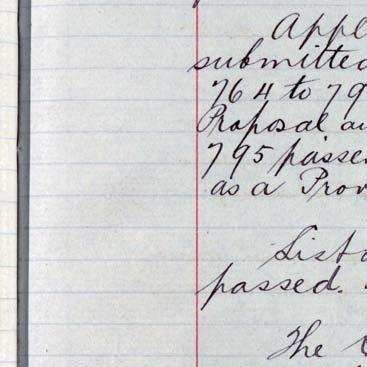 Appl
submitted
764 to 79
Proposal an
795 passed
as a Prov
List o
passed.
The